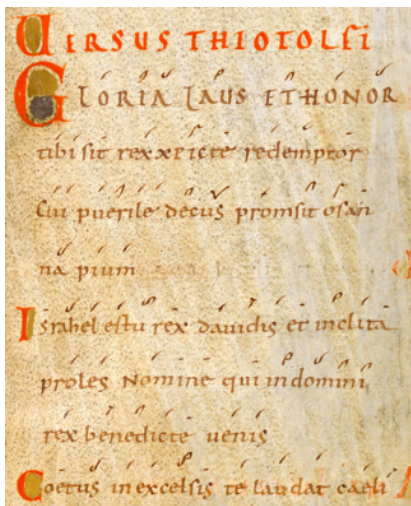 UERSUS THIOTOLFI
GLORIA LAUS ET HONOR
tibi sit rex xpicte redemptor
Cui puerile decus promsit osan
na pium
Israhel es tu rex dauidis et inclita
proles Nomine qui in domini
rex benedicte uenis
Coetus in excelsis te laudat caeli